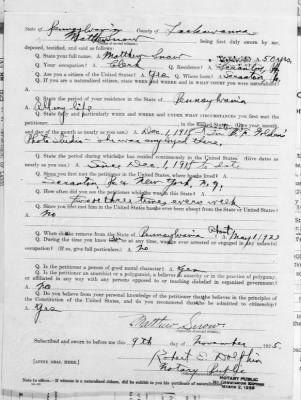 State of Pennsylvania County of Lackawanna
Matthew Snow being first duly sworn by me,
deposed, testified, and said as follows:
Q. State your full name. Matthew Snow 50 yrs.
Q. Your occupation? Clerk Q. Residence? Scranton Pa
Q. Are you a citizen of the United States? Yes Q. Where born? Scranton Pa
Q. If you are a naturalized citizen, state when and where and in what court you were naturalized?
A.
Q. State the of your residence in the State of Pennsylvania
A. All my life
Q. State and particularly when and where and under what circumstances you first met the
petitioner. (Give year, month
and day of the month as nearly as you can.) A. Dec. 1, 1915 in
Photo Studio - she was employed there,
Q. State the period during which she has resided continuously in the United States. (Give dates as
nearly as you can.) A. Since Dec 1 1915 to date
Q. Since you first met the petitioner in the United States, where has she lived? A.
Scranton Pa & New York, N.Y.
Q. How often did you see the petitioner while within this State? A.
two or three times every week
Q. Since you first met him in the United States has he ever been absent from the State or United States?
A. No
Q. When did he remove from the State of Pennsylvania A. May 1, 1923
Q. During the time you have so at any time, was he ever arrested or engaged in any unlawful
occupation? (If so, give full particulars.) A. no
Q. Is the petitioner a person of good moral character? A. Yes
Q. Is the petitioner an anarchist or a polygamist, a believer in anarchy or in the practice of polygamy,
or affiliated in any way with any persons opposed to or teaching disbelief in organized government?
A. no
Q. Do you believe from your personal knowledge of the petitioner that she believes in the principles of
the Constitution of the United States, and do you recommend that she be admitted to citizenship?
A. Yes
Matthew Snow
Subscribed and sworn to before me this 9th day of November 1925.
Robert E. Dolphin
Notary Public
[AFFIX SEAL HERE.]
NOTARY PUBLIC
MY COMMISSION EXPIRES
MARCH 2, 1929
Note to officer.—If witness is a naturalized citizen, did he exhibit to you his certificate of naturalization?